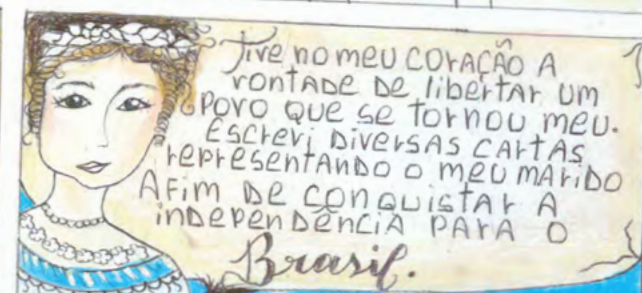 Tive no meu corAção A
vontADe De libertAr um
Povo que se tornou meu.
Escrevi DiversAs cArtAs
representAnDo o meu mAriDo
AFim De conquistAr A
inDepenDênciA PArA o
Brasil.